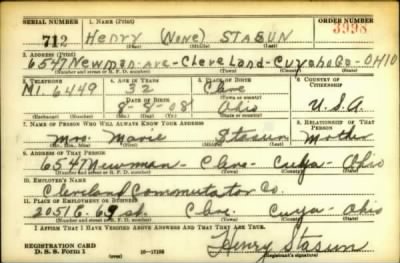 SERIAL NUMBER 1. NAME (Print) ORDER NUMBER
712 Henry (None) Stasun 3998
(First) (Middle) (Last)
2. ADDRESS (Print)
6547 Newman-Ave-Cleveland-Cuyahoga-OHIO
(Number and street or R. F. D. number) (Town) (County) (State)
3. TELEPHONE 4. AGE IN YEARS 5. PLACE OF BIRTH 6. COUNTRY OF CITIZENSHIP
MI. 6449 32 Cleve
DATE OF BIRTH (Town or county)
8-8-08 Ohio U.S.A
(Exchange) (Number) (Mo.) (Day) (Yr.) (State or country)
7. NAME OF PERSON WHO WILL ALWAYS KNOW YOUR ADDRESS 8. RELATIONSHIP OF THAT PERSON
Mrs. Marie Stasun Mother
(Mr., Mrs., Miss) (First) (Middle) (Last)
9. ADDRESS OF THAT PERSON
6547 Newman - Cleve - Cuya - Ohio
(Number and street or R. F. D. number) (Town) (County) (State)
10. EMPLOYER'S NAME
Cleveland Commutator Co.
11. PLACE OF EMPLOYMENT OR BUSINESS
2051 E. 65 Cleve. Cuya - Ohio
(Number and street or R. F. D. number) (Town) (County) (State)
I AFFIRM THAT I HAVE VERIFIED ABOVE ANSWERS AND THAT THEY ARE TRUE.
REGISTRATION CARD
D. S. S. Form 1 16-17105 Henry Stasun